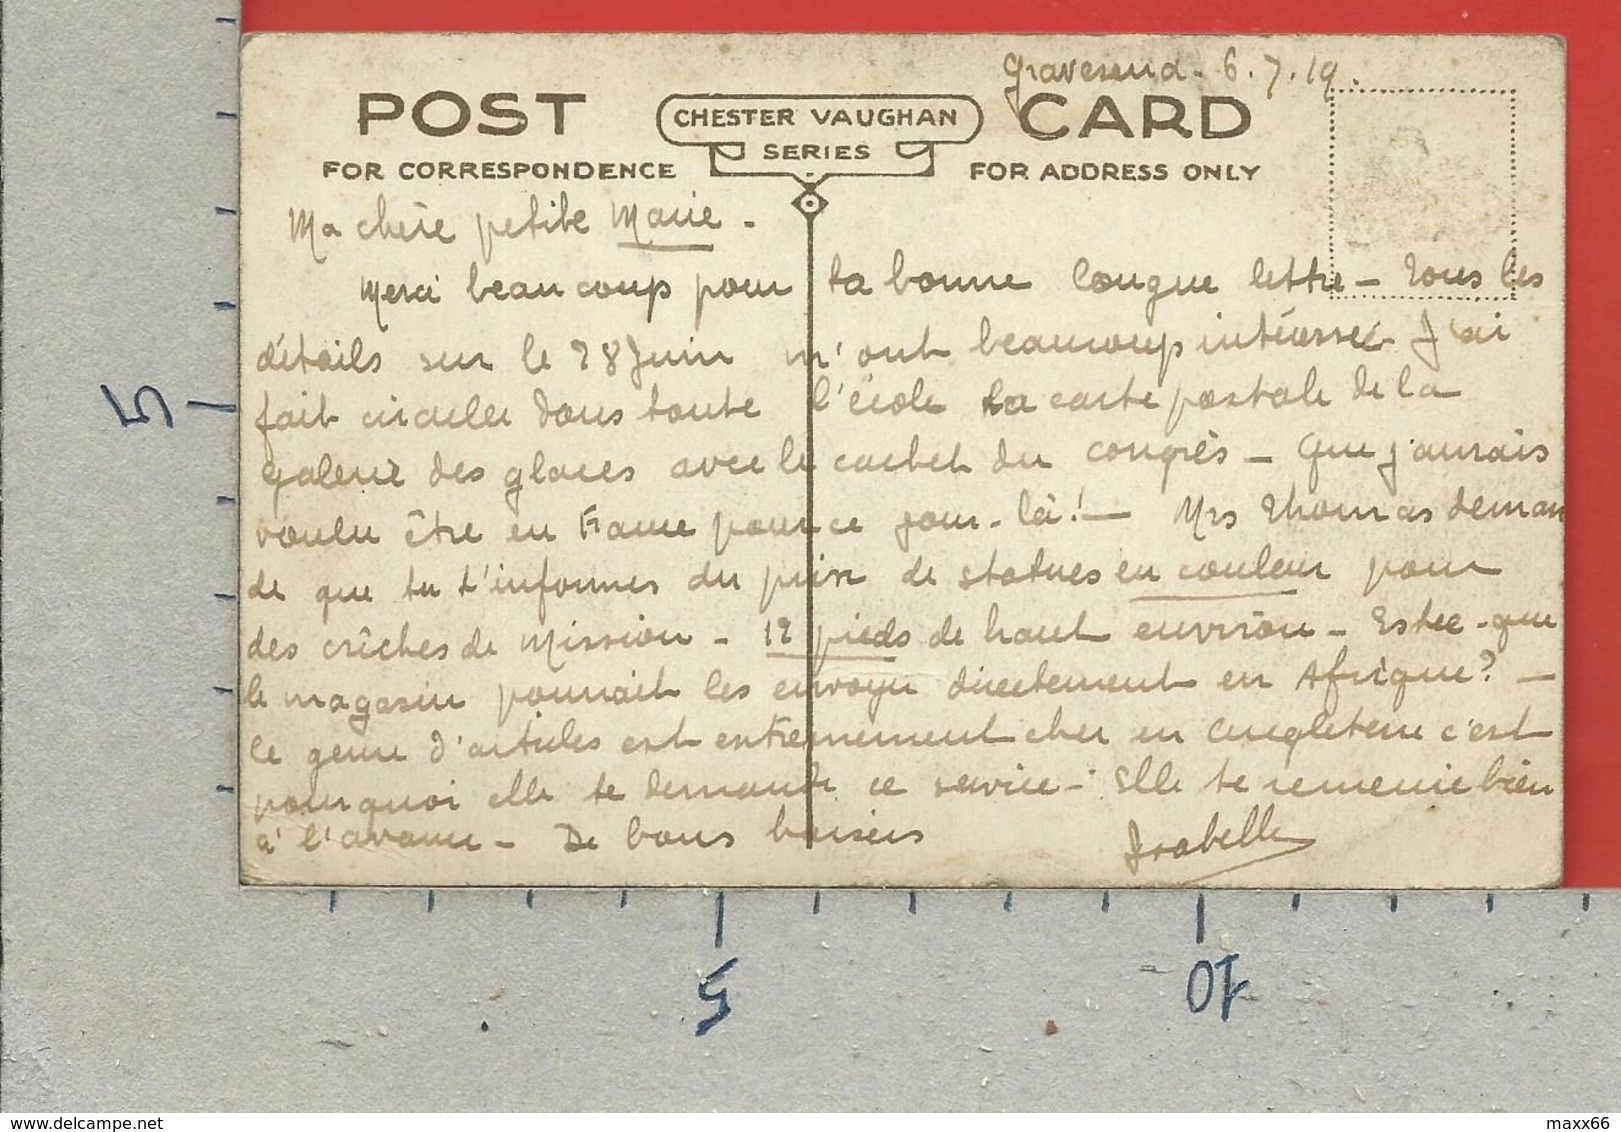 Gravesend. 6.7.19.
POST CARD
CHESTER VAUGHAN
SERIES
FOR CORRESPONDENCE
FOR ADDRESS ONLY
Ma chère petite Marie -
Merci beaucoup pour ta bonne longue lettre - Tous les
détails sur le 28 Juin m'ont beaucoup intéressée J'ai
fait circuler dans toute l'école la carte postale de la
galerie des glaces avec le cachet du congrès - Que j'aurais
voulu être en France pour ce jour-là! - Mrs Thomas deman
de que tu t'informes du prix de statues en couleur pour
des crèches de Mission - 12 pieds de haut environ - Estce-que
le magasin pourrait les envoyer directement en Afrique? -
Ce genre d'articles est extrêmement cher en Angleterre c'est
pourquoi elle te demande ce service - Elle te remercie bien
à l'avance - De bons baisers
Isabelle
5
5
10
delcampe.net
maxx66